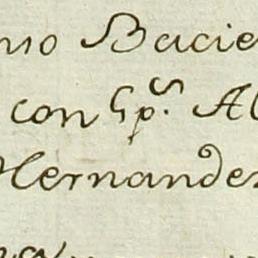 mo Bacie
con Gp.s Al
Hernandez